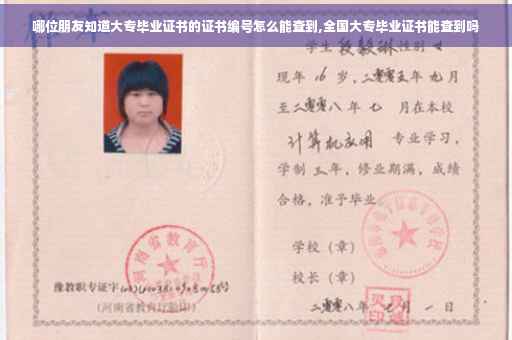 哪位朋友知道大专毕业证书的证书编号怎么能查到,全国大专毕业证书能查到吗
学生 段毅琳 性别 女
现年 16 岁,二零零五年 九月
至二零零八年 七 月在本校
计算机应用 专业学习,
学制 三年,修业期满,成绩
合格,准予毕业
学校(章)
校长(章)
二零零八年 七 月 一 日
河南省教育厅
豫教职专证字
(河南省教育厅验印)